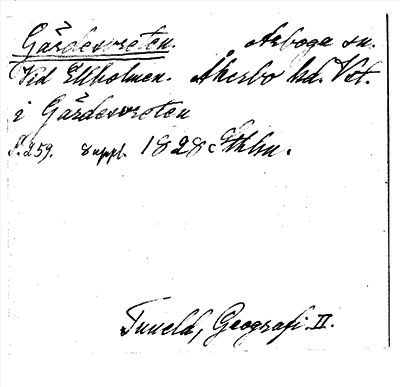 Gärdesvreten. Arboga sn.
Vid Ekholmen. Åkerbo hd. Vstm.
i Gärdesvreten
S. 259. 8 uppl. 1828 Sthlm.
Tuneld, Geografi. II.